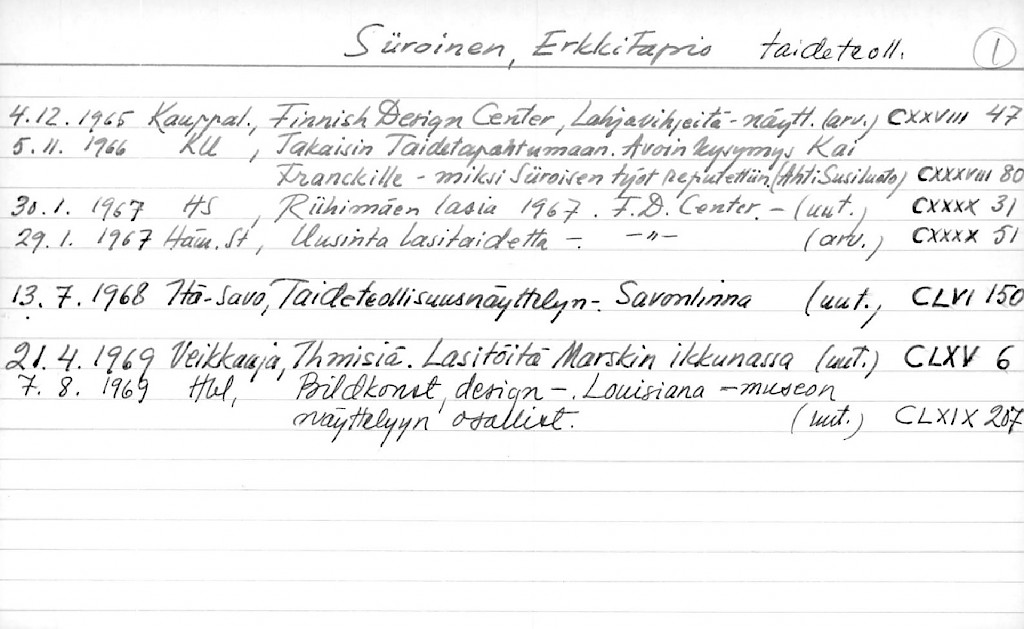 Siiroinen, ErkkiTapio taideteoll. 1
4.12.1965 Kauppal., Finnish Design Center, Lahjavihjeitä-näytt. (arv.) CXXVIII 47
5.11.1966 KU, Takaisin Taidetapahtumaan. Avoin kysymys Kai
Franckille - miksi Siiroisen työt reputettiin. (Ahti Susiluoto) CXXXVIII 80
30.1.1967 HS, Riihimäen lasia 1967. F.D. Center. - (uut.) CXXXX 31
29.1.1967 Häm.St, Uusinta lasitaidetta -. -"- (arv.) CXXXX 51
13.7.1968 Itä-Savo, Taideteollisuusnäyttelyn-. Savonlinna (uut., CLVI 150
21.4.1969 Veikkaaja, Ihmisiä. Lasitöitä Marskin ikkunassa (uut.) CLXV 6
7.8.1969 Hbl, Bildkonst, design -. Louisiana -museon
näyttelyyn osallist. (uut.) CLXIX 207